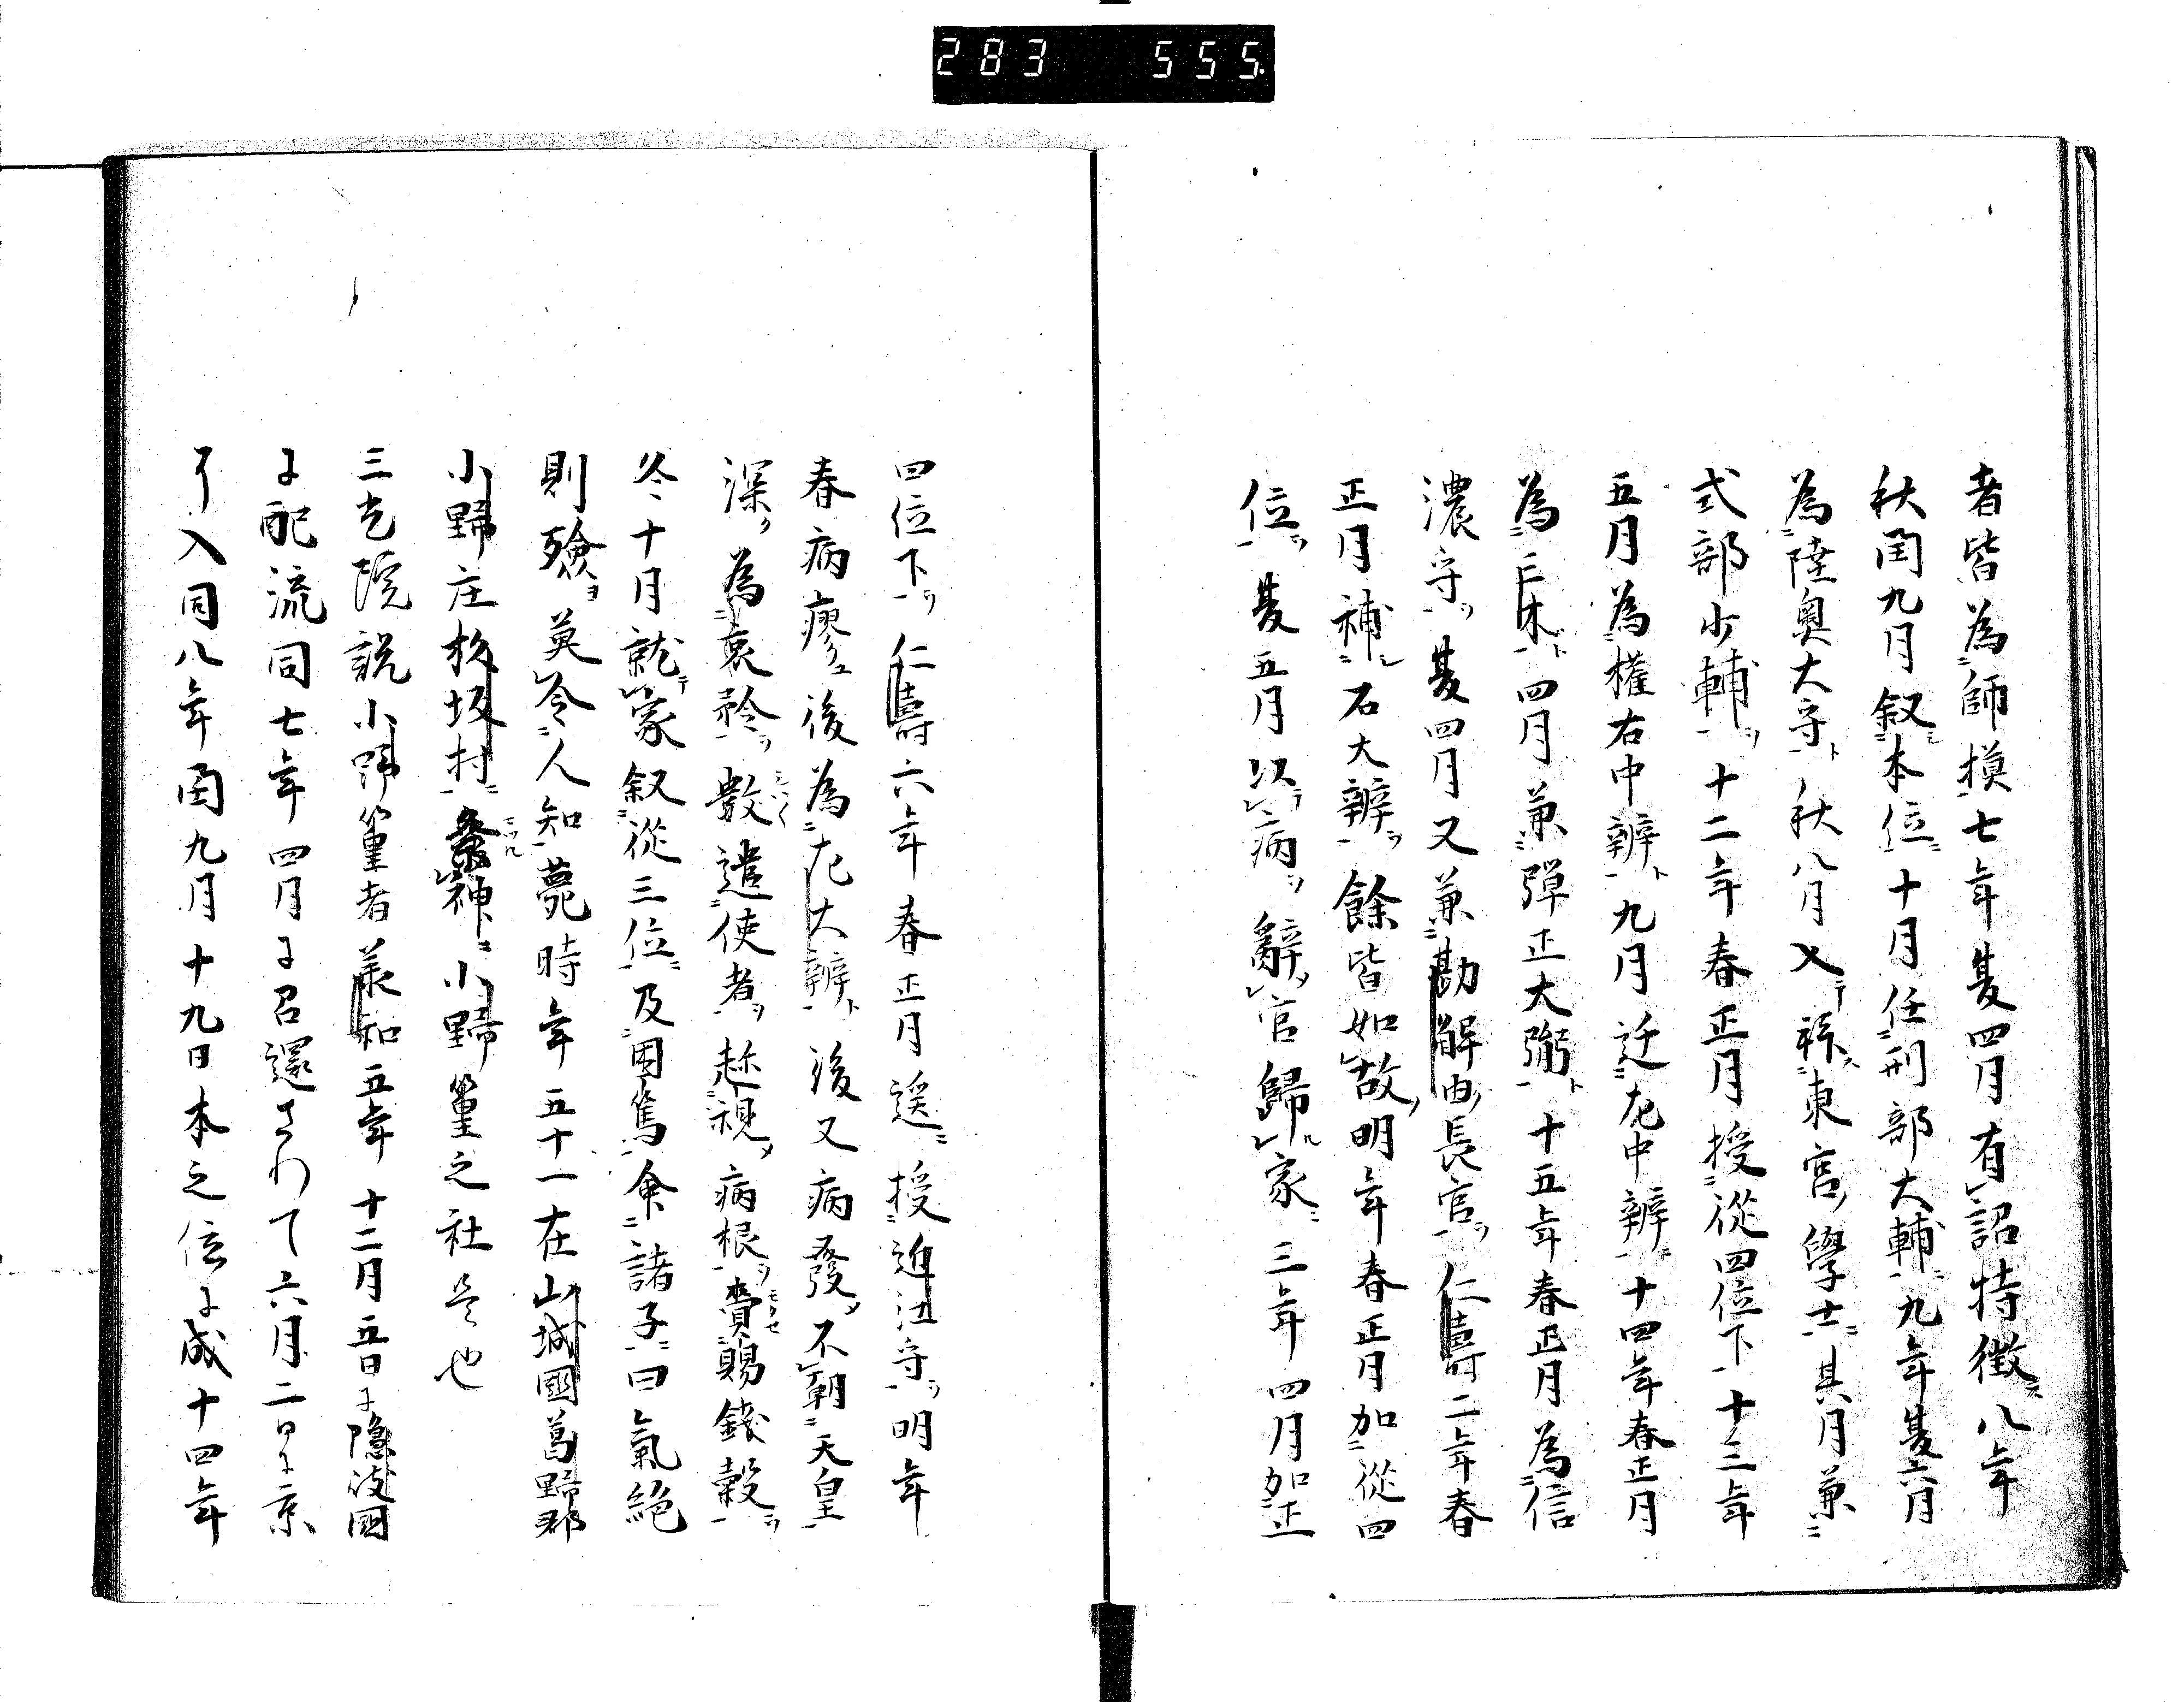 283 555.
者皆為師摸七年夏四月有詔特徴八年
秋閏九月叙本位十月任刑部大輔九年夏六月
為陸奥大守秋八月入東宮學士其月兼
式部少輔十二年春正月授從四位下十三年
五月為權右中辨九月迁左中辨十四年春正月
為四月兼彈正大弼十五年春正月為信
濃守夏四月又兼勘解由長官仁壽二年春
正月補右大辨餘皆如故明年春正月加從四
位夏五月以病辭官歸家三年四月加正
四位下仁壽六年春正月遥授近江守明年
春病瘳後為左大辨後又病發不朝天皇
深為哀矜數遣使者趂視病根賚賜錢穀
冬十月就家叙從三位及困篤命諸子曰氣絶
則殮莫令人知薨時年五十一在山城國葛野郡
小野庄杉坂村祭神小野篁之社是也
三光院説小野篁者承和五年十二月五日ニ隠岐國
ニ配流同七年四月ニ召還されて六月二日ニ京
了入同八年閏九月十九日本之位ニ成十四年